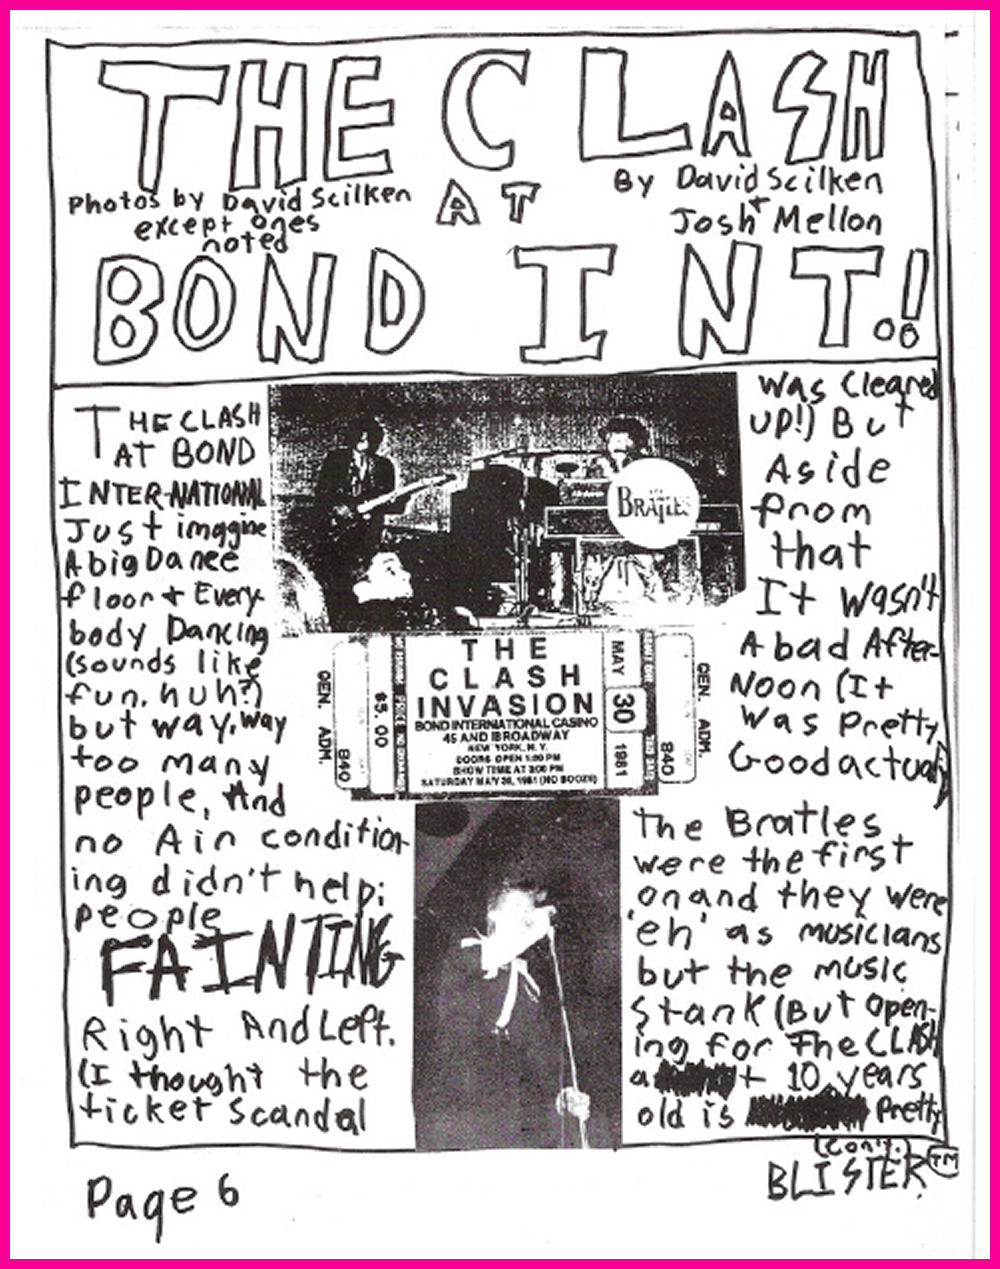 THE CLASH
Photos by David Scilken
except ones
noted
AT
By David Scilken
+
Josh Mellon
BOND INT.!
THE CLASH
AT BOND
INTER-NATIONAL
Just imagine
A big Dance
floor + Every-
body Dancing
(sounds like
fun, huh?)
but way, way
too many
people, And
no Air condition-
ing didn't help;
people
FAINTING
Right And Left.
(I thought the
ticket scandal
THE
BRATLES
GEN. ADM.
840
$5.00
THE
CLASH
INVASION
BOND INTERNATIONAL CASINO
45 AND BROADWAY
NEW YORK, N.Y.
DOORS OPEN 1:00 PM
SHOW TIME AT 2:00 PM
SATURDAY MAY 30, 1981 (NO BOOZE)
MAY
30
1981
840
GEN. ADM.
was cleared
up!) But
Aside
from
that
It wasn't
A bad After-
Noon (It
was pretty
Good actually)
The Bratles
were the first
on and they were
'eh' as musicians
but the music
stank (But open-
ing for The CLASH
at 10 years
old is pretty
(con't.)
Page 6
BLISTER TM